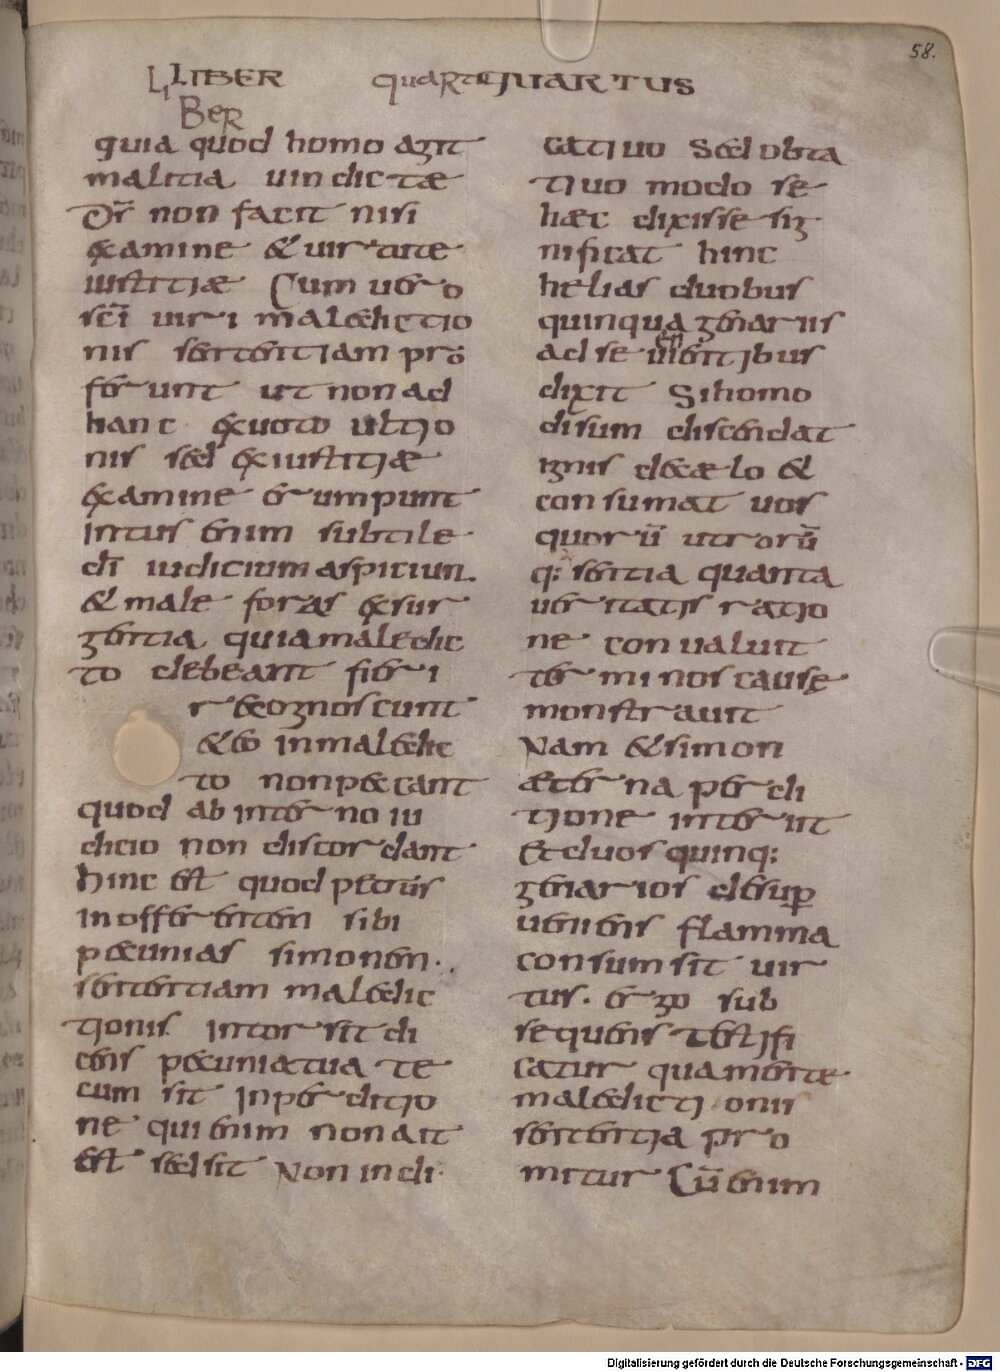 58.
LLIBER quartQUARTUS
BER
quia quod homo agit
malitia uindictae
Dr̄ non facit nisi
examine & uirtute
iustitiae Cum uero
sc̄i uiri maledictio
nis sententiam pro
ferunt ut non ad
hanc ex uoto ultio
nis sed ex iustitiae
examine erumpunt
Intus enim subtile
dī iudicium aspiciun.
& male foras exsur
gentia quia maledic
to debeant feri
recognoscunt
& eo in maledic
to non peccant
quod ab interno iu
dicio non discordant
hinc est quod petrus
in offerentem sibi
pecunias simonen..
sententiam maledic
tionis intorsit di
cens pecunia tua te
cum sit In perditio
ne qui enim non ait
est sed sit Non indi
catiuo Sed obta
tiuo modo se
haec dixisse sig
nificat hinc
helias duobus
quinquagenariis
ad se uenientibus
dixit Si homo
di sum discendat
ignis de caelo &
consumat uos
quorū utrorū
q; sentia quanta
ueritatis ratio
ne conualuit
terminos causę
monstrauit
Nam & simon
aeterna perdi
tione interiit
Et duos quinq;
genarios desup
ueniens flamma
consumsit uir
tus. ergo sub
sequens testifi
catur qua mente
maledictionis
sententia pro
mitur Cū enim
Digitalisierung gefördert durch die Deutsche Forschungsgemeinschaft - DFG